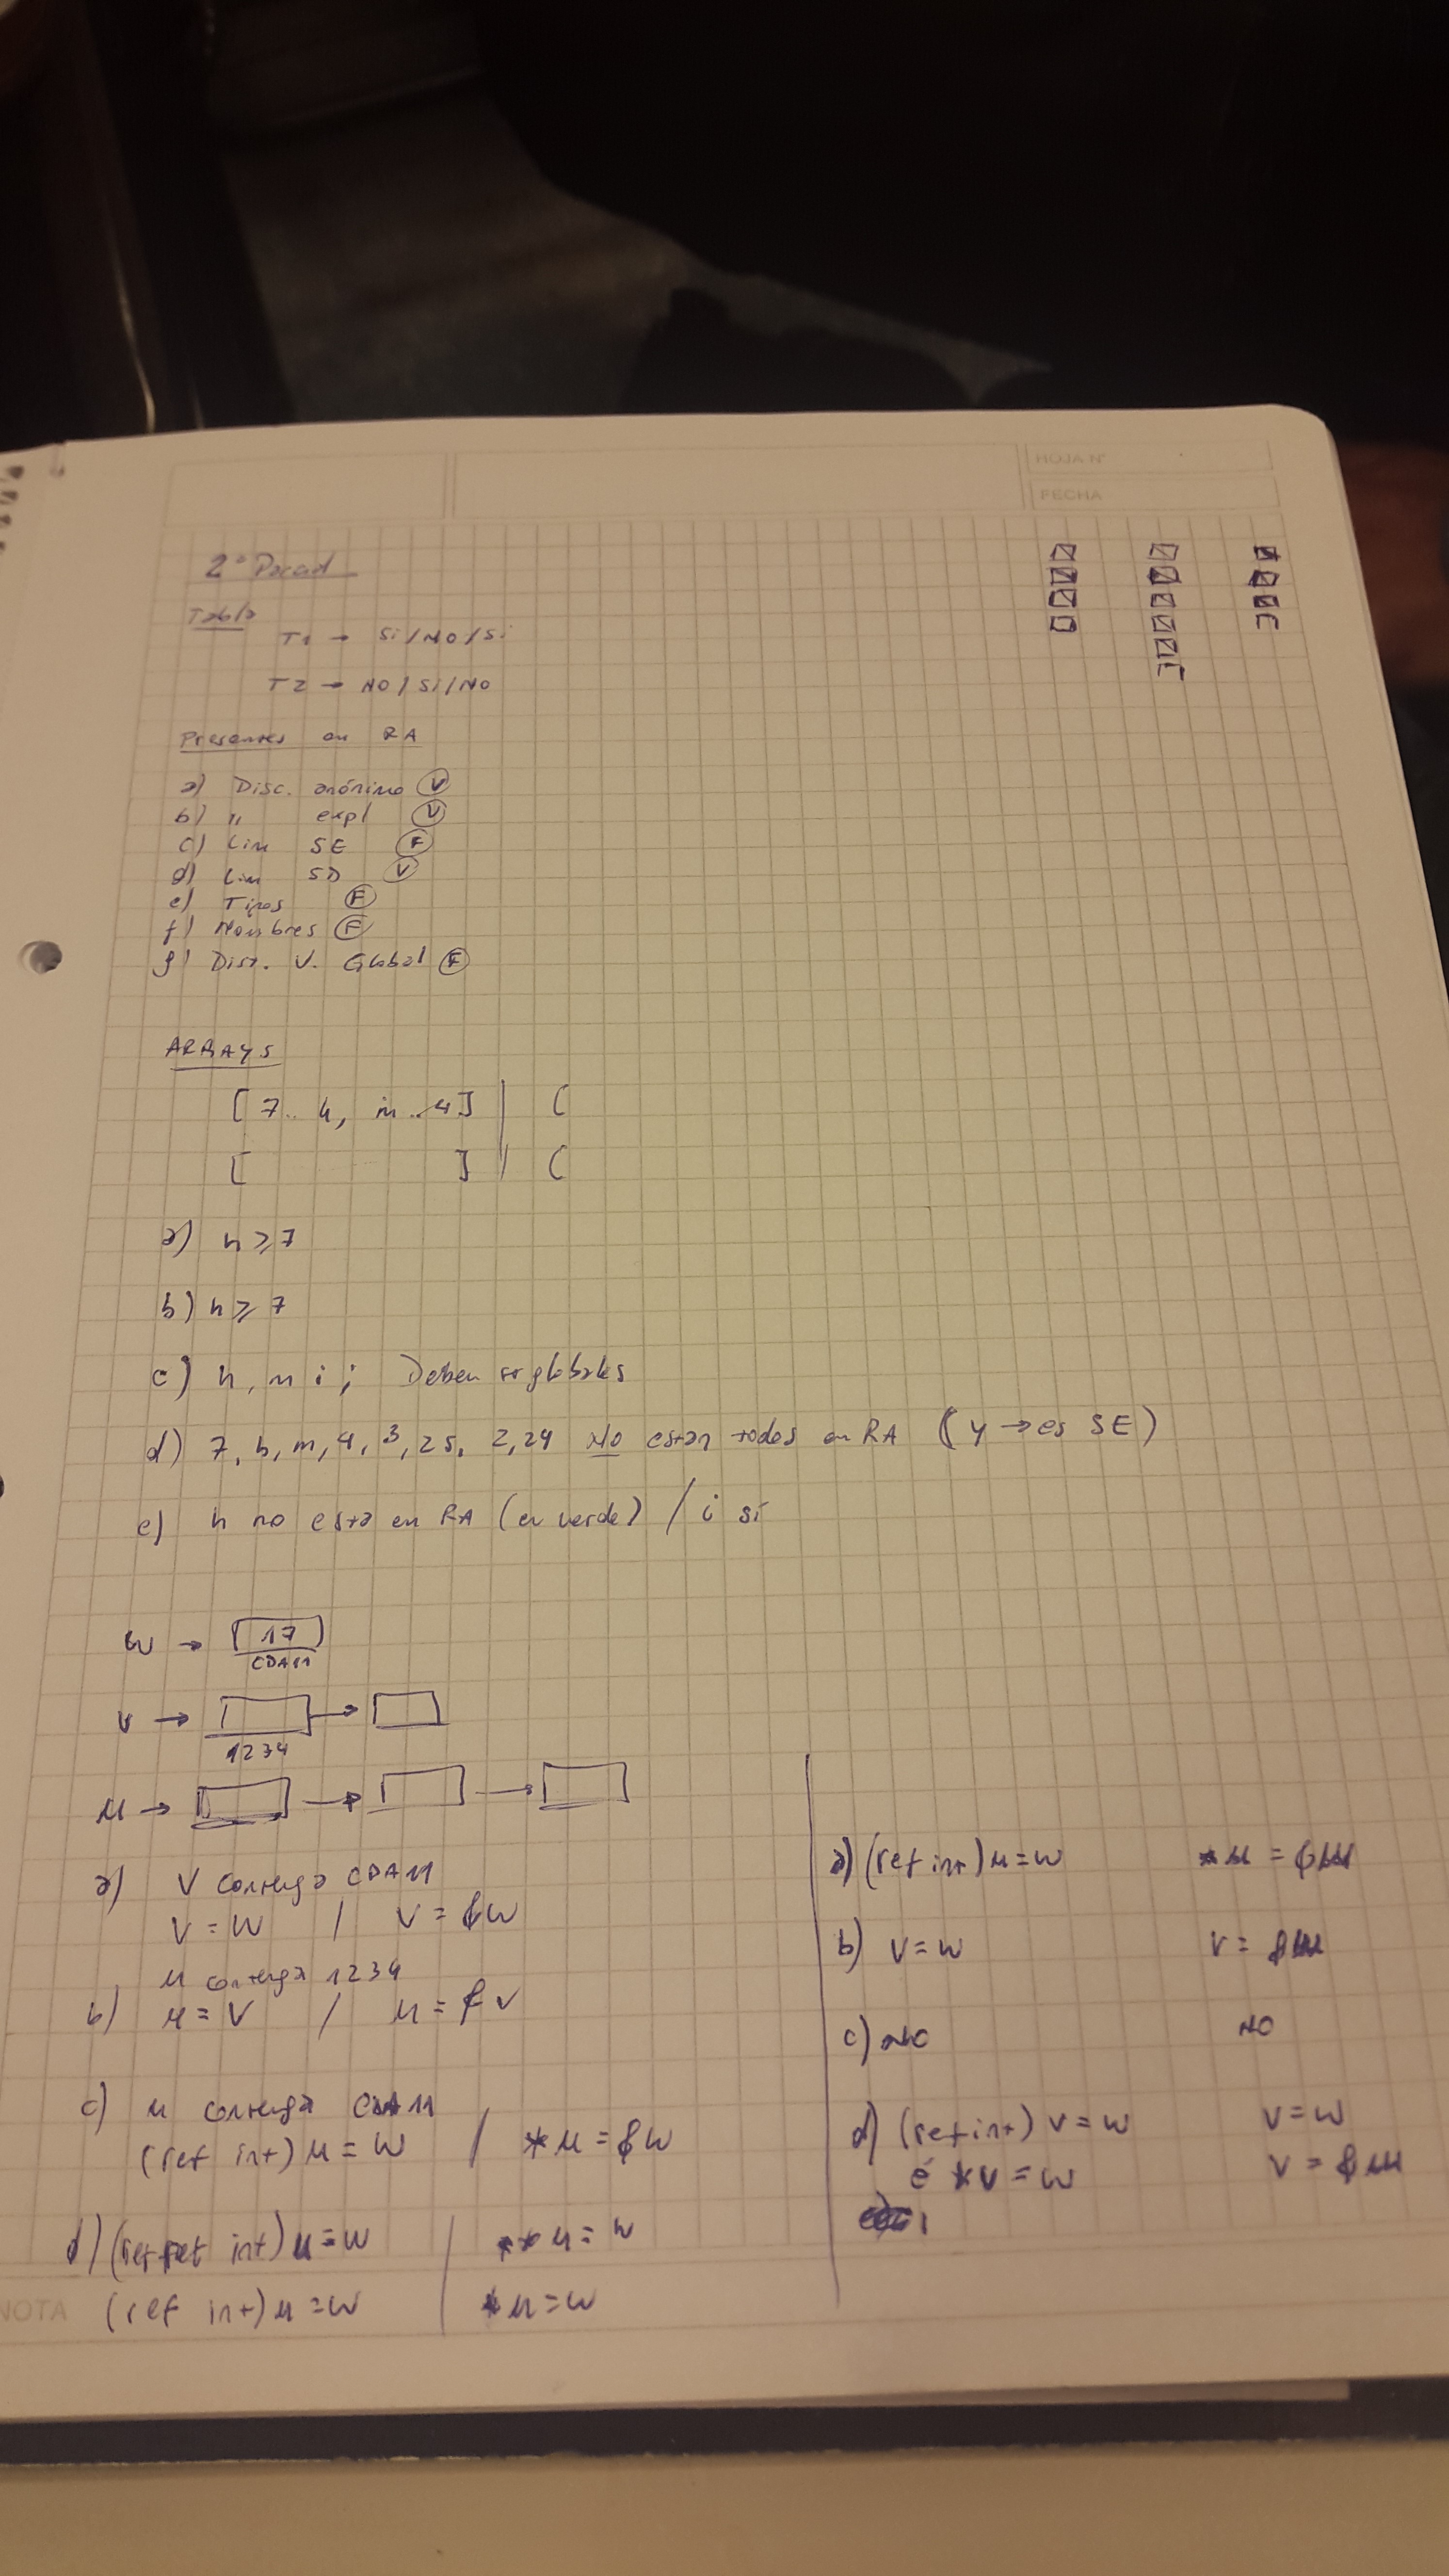 HOJA Nº
FECHA
2º Parcial
Tabla
T1 → Si/NO/Si
T2 → NO/Si/NO
Presentes en RA
a) Disc. anónimo (V)
b) " expl (V)
c) Lim SE (F)
d) Lim SD (V)
e) Tipos (F)
f) Nombres (F)
g) Dist. V. Global (F)
ARRAYS
[7.. h, m..4] | (
[ ] | (
a) h ≥ 7
b) h ≥ 7
c) h, m i j Deben ser globales
d) 7, h, m, 4, 3, 25, 2, 24 NO están todos en RA (y → es SE)
e) h no está en RA (en verde) / i sí
W → 17
CDA11
V → 
1234
M →
a) V contenga CDA11
V = W / V = &W
M contenga 1234
b) M = V / M = &V
c) M contenga CDA11
(ref int) M = W / *M = &W
d) (ref ref int) M = W | **M = W
(ref int) M = W | *M = W
a) (ref int) M = W *M = &W
b) V = W V = &W
c) NO NO
d) (ref int) V = W V = W
é *V = W V = &W
NOTA